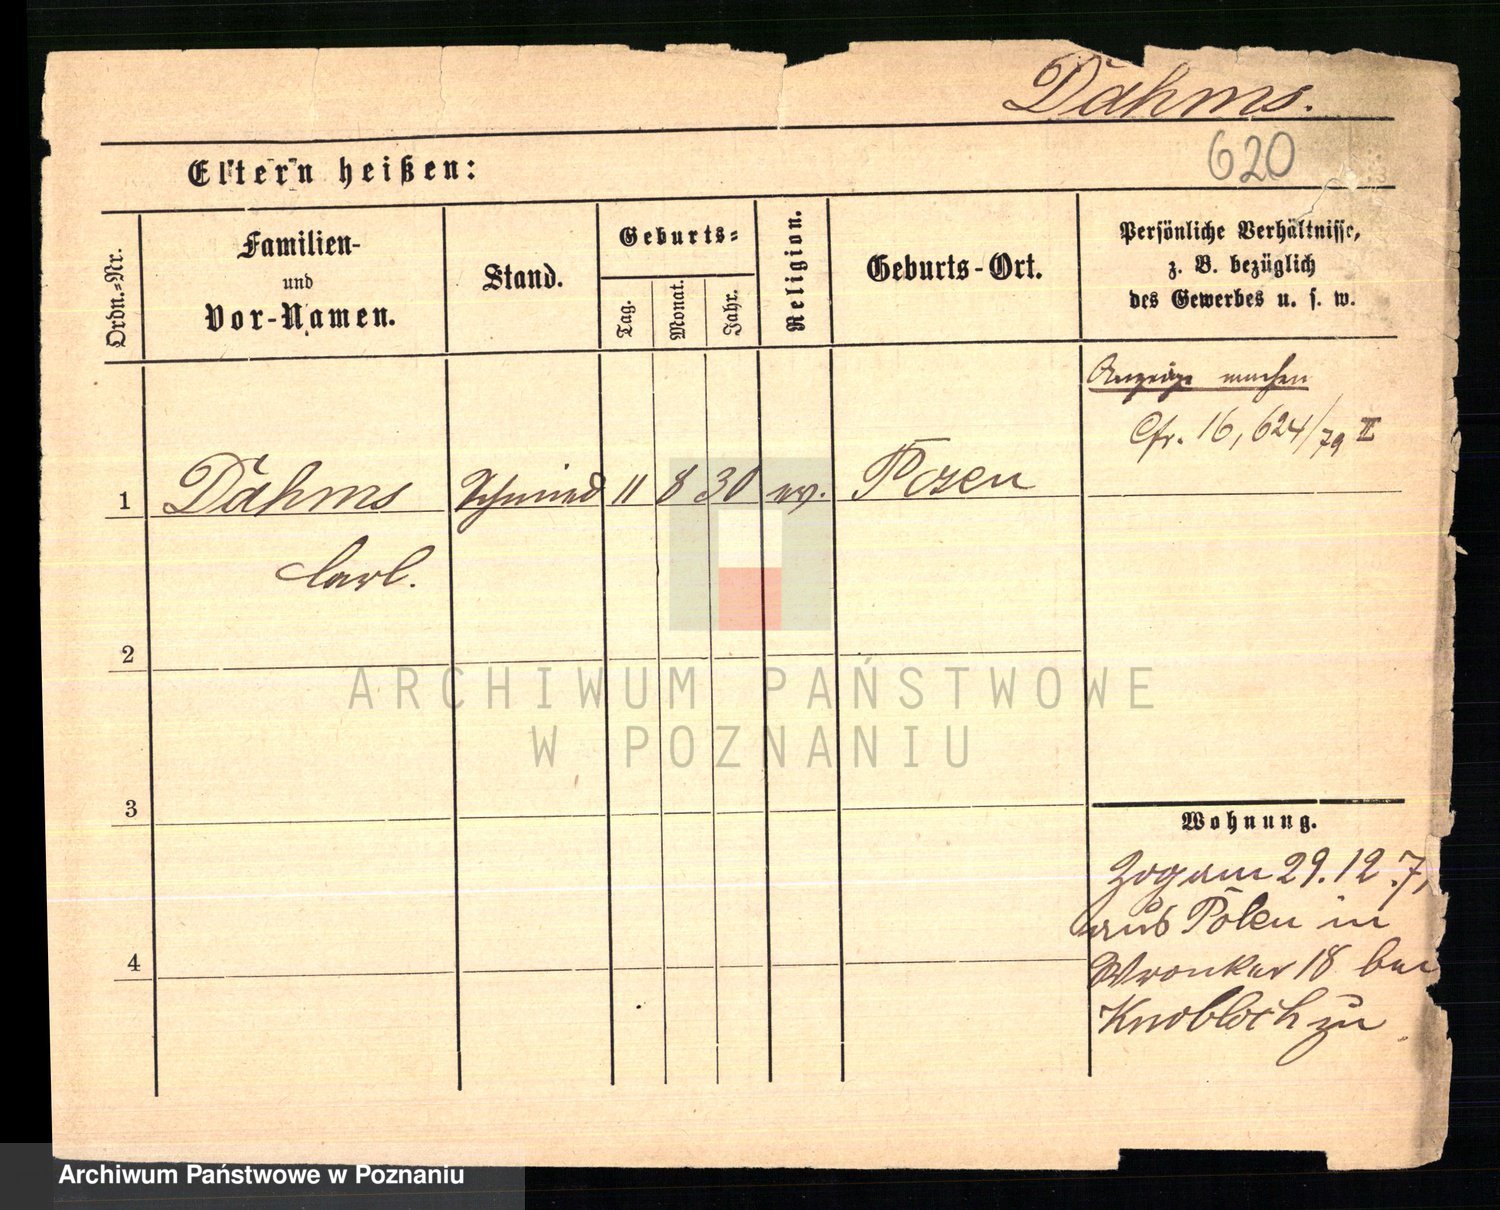 Dähms.
620
Eltern heißen:
Ordn.-Nr.
Familien-
und
Vor-Namen.
Stand.
Geburts-
Tag.
Monat.
Jahr.
Religion.
Geburts-Ort.
Persönliche Verhältnisse,
z. B. bezüglich
des Gewerbes u. s. w.
Anzeige machen
Cfr. 16,624/79 II
1 Dähms Schmied 11 8 30 ev. Posen
Carl.
2
3
4
Wohnung.
Zog am 29.12.7
aus Polen in
Wronker 18 bei
Knobloch zu
ARCHIWUM PAŃSTWOWE
W POZNANIU
Archiwum Państwowe w Poznaniu